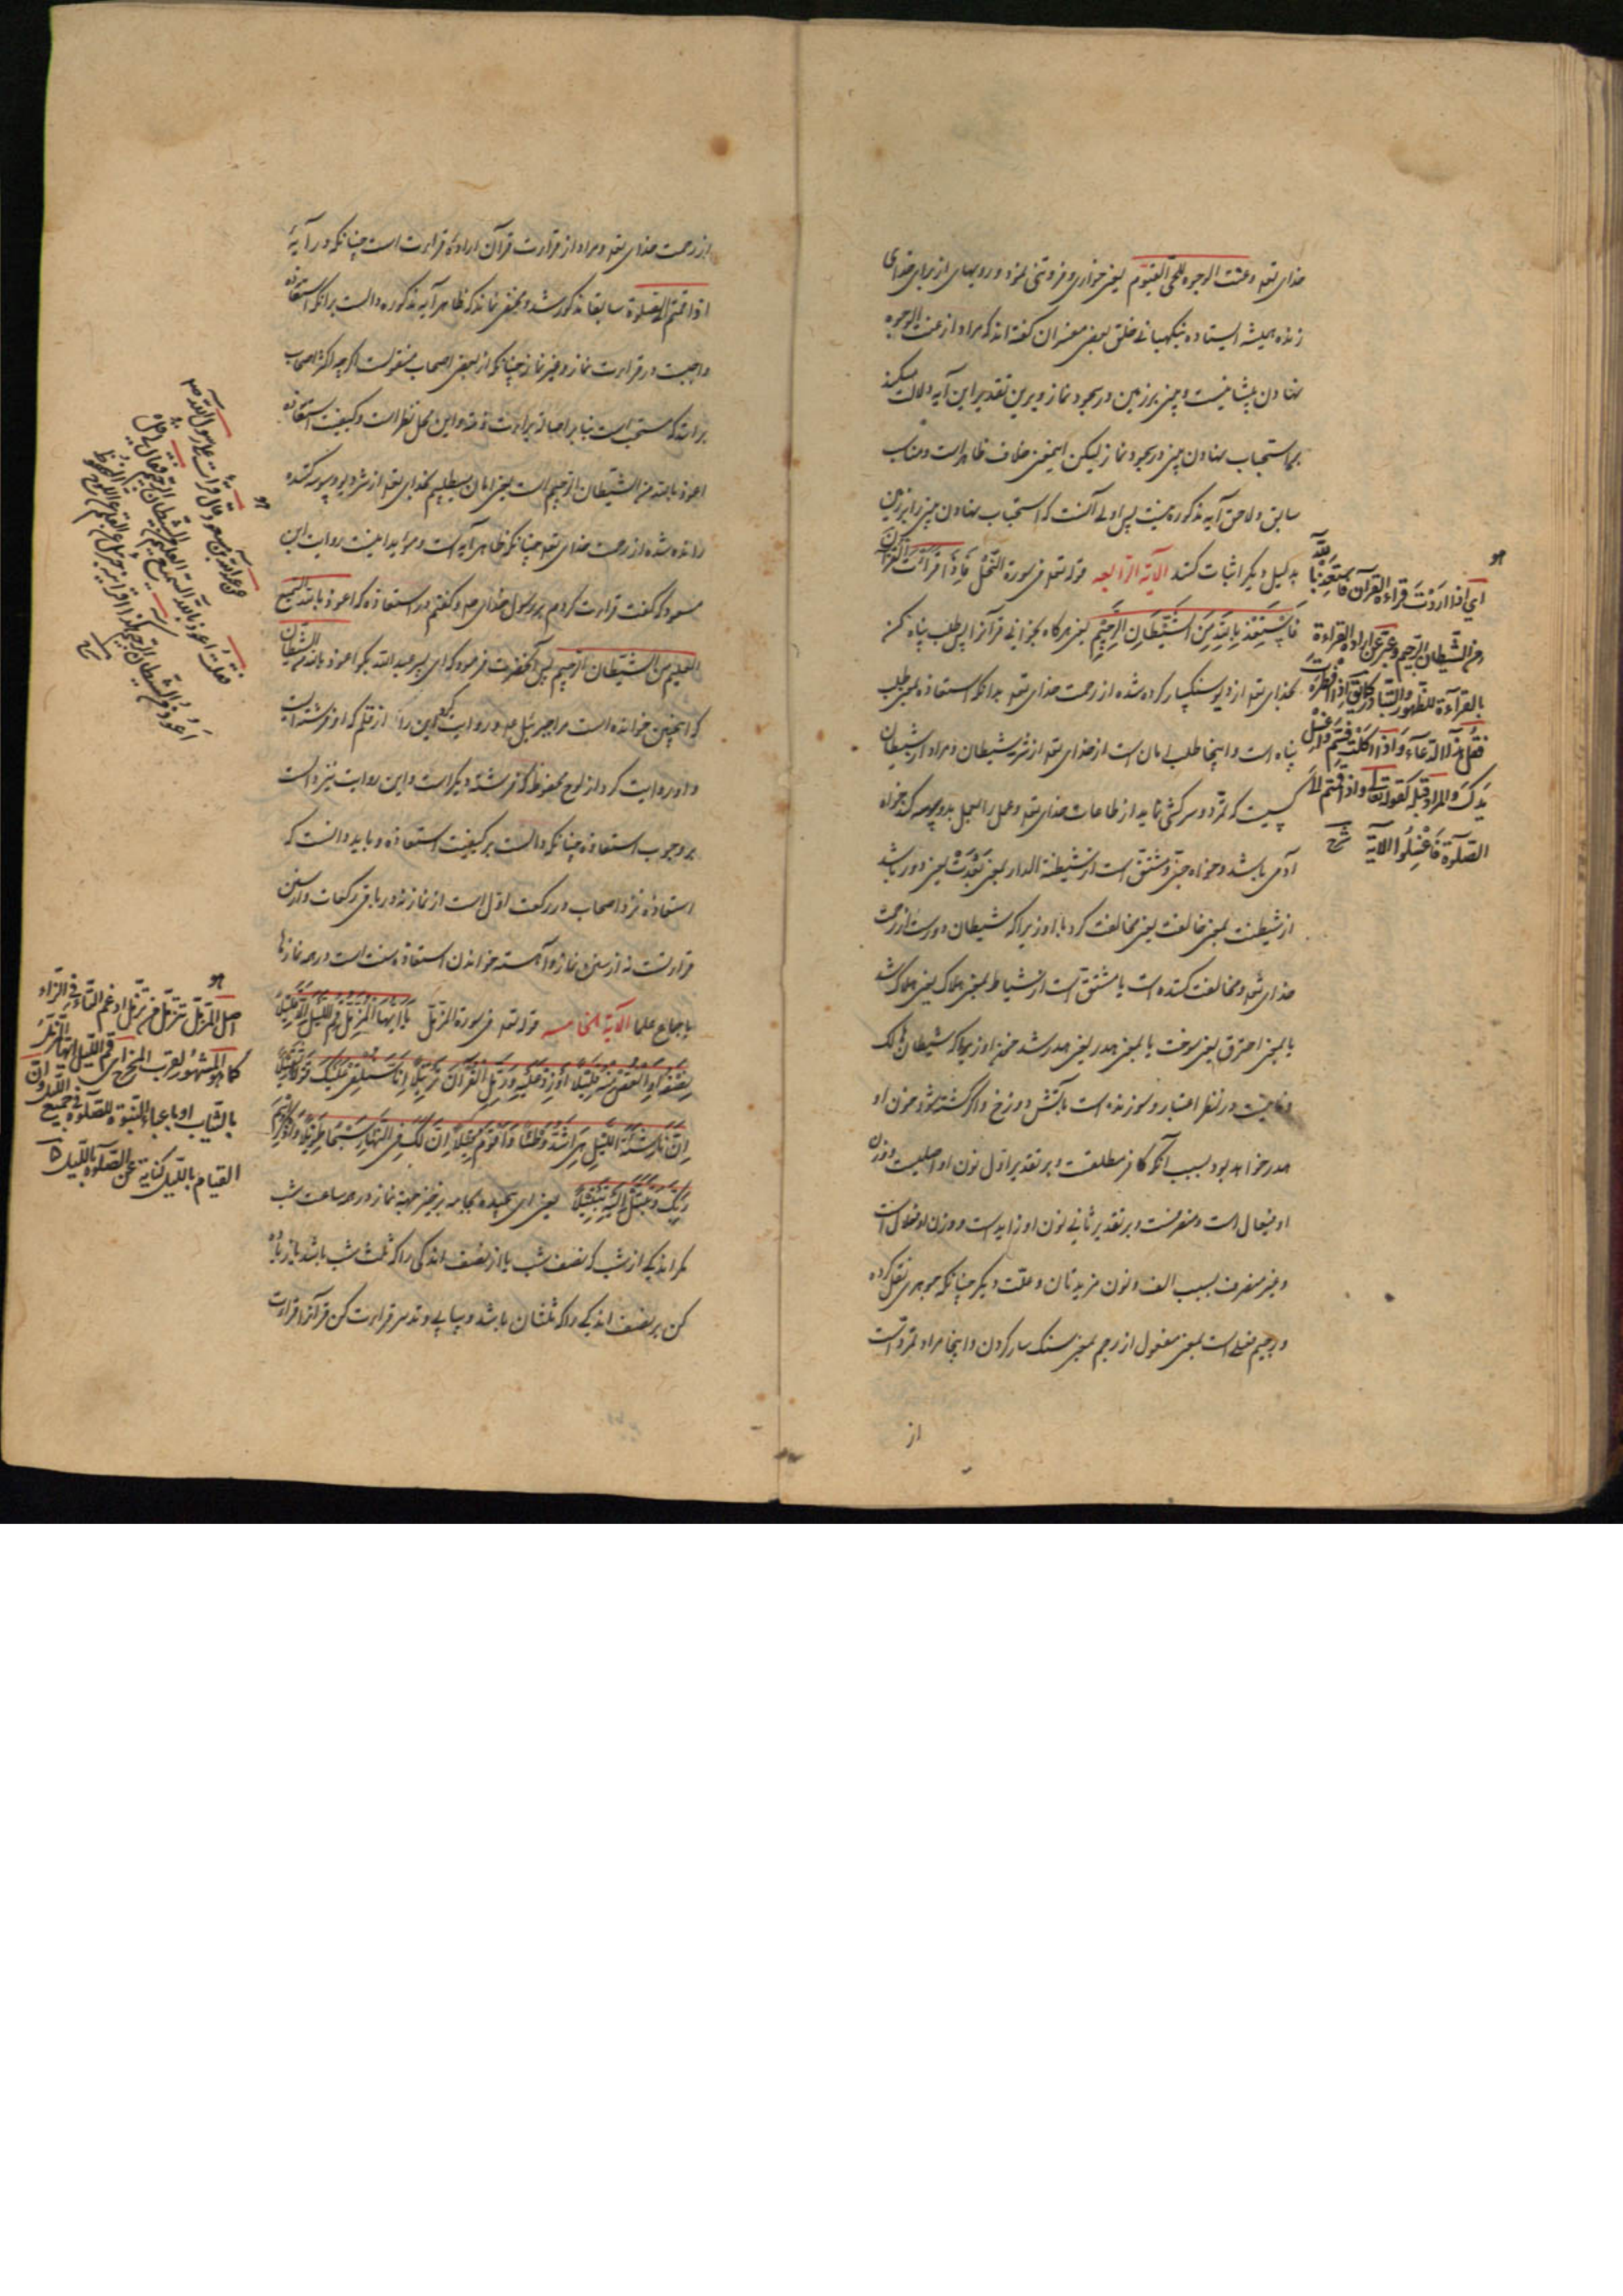 خدای تعه وعنت الوجوه للحی القیوم یعنی خواری و فروتنی نمود رویهای از برای خدای
زنده همیشه ایستاده بنگهبانی خلق بعضی مفسران گفته اند که مراد از عنت الوجوه
نهادن پیشانیست و بینی بر زمین در سجود نماز و برین تقدیر این آیه دلالت میکند
بر استحباب نهادن بینی در سجود نماز لیکن این معنی خلاف ظاهر است و مناسب
سابق و لاحق آیه مذکوره نیست پس اولی آنست که استحباب نهادن بینی را بر زمین
بدلیل دیگر اثبات کنند الآیة الرابعه قوله تعه فی سورة النحل فاذا قرأت القرآن
فاستعذ بالله من الشیطان الرجیم یعنی هرگاه بخوانی قرآنرا پس طلب پناه کن
بخدای تعه از دیو سنگسار کرده شده از رحمت خدای تعه بدانکه استعاذه بمعنی طلب
پناه است و اینجا طلب امان است از خدای تعه از شر شیطان و مراد از شیطان
کسیست که تمرد و سرکشی نماید از طاعات خدای تعه و عمل را بعمل بد وسوسه کند خواه
آدمی باشد و خواه جنی و مشتق است از شیطنة الدار بمعنی بعدت یعنی دور باشد
از شیطنت بمعنی مخالفت یعنی مخالفت کرد با او زیرا که شیطان دورست از رحمت
خدای تعه و مخالفت کننده است یا مشتق است از شیاط بمعنی هلاک یعنی هلاک شد
یا بمعنی احترق یعنی سوخت یا بمعنی هدر یعنی هدر شد خون او زیرا که شیطان هالک
و خایبست در نظر اعتبار و سوزنده است بآتش دوزخ و اگر کشته شود خون او
هدر خواهد بود بسبب آنکه کافر مطلقست و بر تقدیر اول نون او اصلیست و وزن
او فیعال است و منصرفست و بر تقدیر ثانی نون او زایدست و وزن او فعلان است
و غیر منصرف بسبب الف و نون مزیدتان و علت دیگر چنانکه جوهری نقل کرده
و رجیم فعیل است بمعنی مفعول از رجم بمعنی سنگ سار کردن و اینجا مراد طرد است
از
ای اذا اردت قراءة القرآن فاستعذ بالله
من الشیطان الرجیم وعبر عن ارادة القراءة
بالقراءة للظهور والتبادر کما یق اذا افطرت
فقل هذا الدعاء واذا اکلت فسم واغسل
یدک والمراد قبله کقوله تعالی واذا قمتم الی
الصلوة فاغسلوا الآیة شرح
از رحمت خدای تعه و مراد از قراءت قرآن ارادهٔ قراءت است چنانکه در آیهٔ
اذا قمتم الی الصلوة سابقا مذکور شد و مخفی نماند که ظاهر آیه مذکوره دالست برانکه استعاذه
واجبست در قراءت نماز و غیر نماز چنانکه از بعضی اصحاب منقولست اگرچه اکثر اصحاب
برانند که مستحب است بنا بر اصالة براءت ذمه و این محل نظر است و کیفیت استعاذه
اعوذ بالله من الشیطان الرجیم است یعنی امان میطلبم بخدای تعه از شر دیو وسوسه کننده
رانده شده از رحمت خدای تعه چنانکه ظاهر آیه است و مؤید اینست روایت ابن
مسعود که گفت قراءت کردم بر رسول خدای صلعم و گفتم در استعاذه که اعوذ بالله السمیع
العلیم من الشیطان الرجیم پس آنحضرت فرمود که ای پسر عبد الله بگو اعوذ بالله من الشیطان
که اینچنین خوانده است مرا جبرئیل علم و روایت کرده این را از قلم که او فرشته است
و او روایت کرد از لوح محفوظ که فرشته دیگر است و این روایت نیز دالست
بر وجوب استعاذه چنانکه دالست بر کیفیت استعاذه و باید دانست که
استعاذه نزد اصحاب در رکعت اول است از نماز نه در باقی رکعات و از سنن
قراءتست نه از سنن نماز و آهسته خواندن استعاذه سنت است در همه نمازها
باجماع علما الآیة الخامسه قوله تعه فی سورة المزمل یا ایها المزمل قم اللیل الا قلیلا
نصفه او انقص منه قلیلا او زد علیه ورتل القرآن ترتیلا انا سنلقی علیک قولا ثقیلا
ان ناشئة اللیل هی اشد وطئا واقوم قیلا ان لک فی النهار سبحا طویلا واذکر اسم
ربک وتبتل الیه تبتیلا یعنی ای پیچیده بجامه برخیز جهة نماز در همه ساعت شب
مگر اندکی از شب که نصف شب یا از نصف اندکی را که ثلث شب باشد یا زیاده
کن بر نصف اندکی را که ثلثان باشد و بیاپی و تدبر قراءت کن قرآنرا قراءت
عن عبد الله بن مسعود قال قرأت علی رسول الله ص
فقلت اعوذ بالله السمیع العلیم من الشیطان الرجیم فقال لی قل
اعوذ بالله من الشیطان الرجیم هکذا اقرأنیه جبرئیل عن القلم عن اللوح المحفوظ
شرح
اصل المزمل متزمل من تزمل ادغم التاء فی الزاء
کما هو المشهور لقرب المخرج ای قم اللیل ایها المتزمل
بالثیاب او باعباء النبوة للصلوة فی جمیع اللیل وان
القیام باللیل کنایة عن الصلوة باللیل